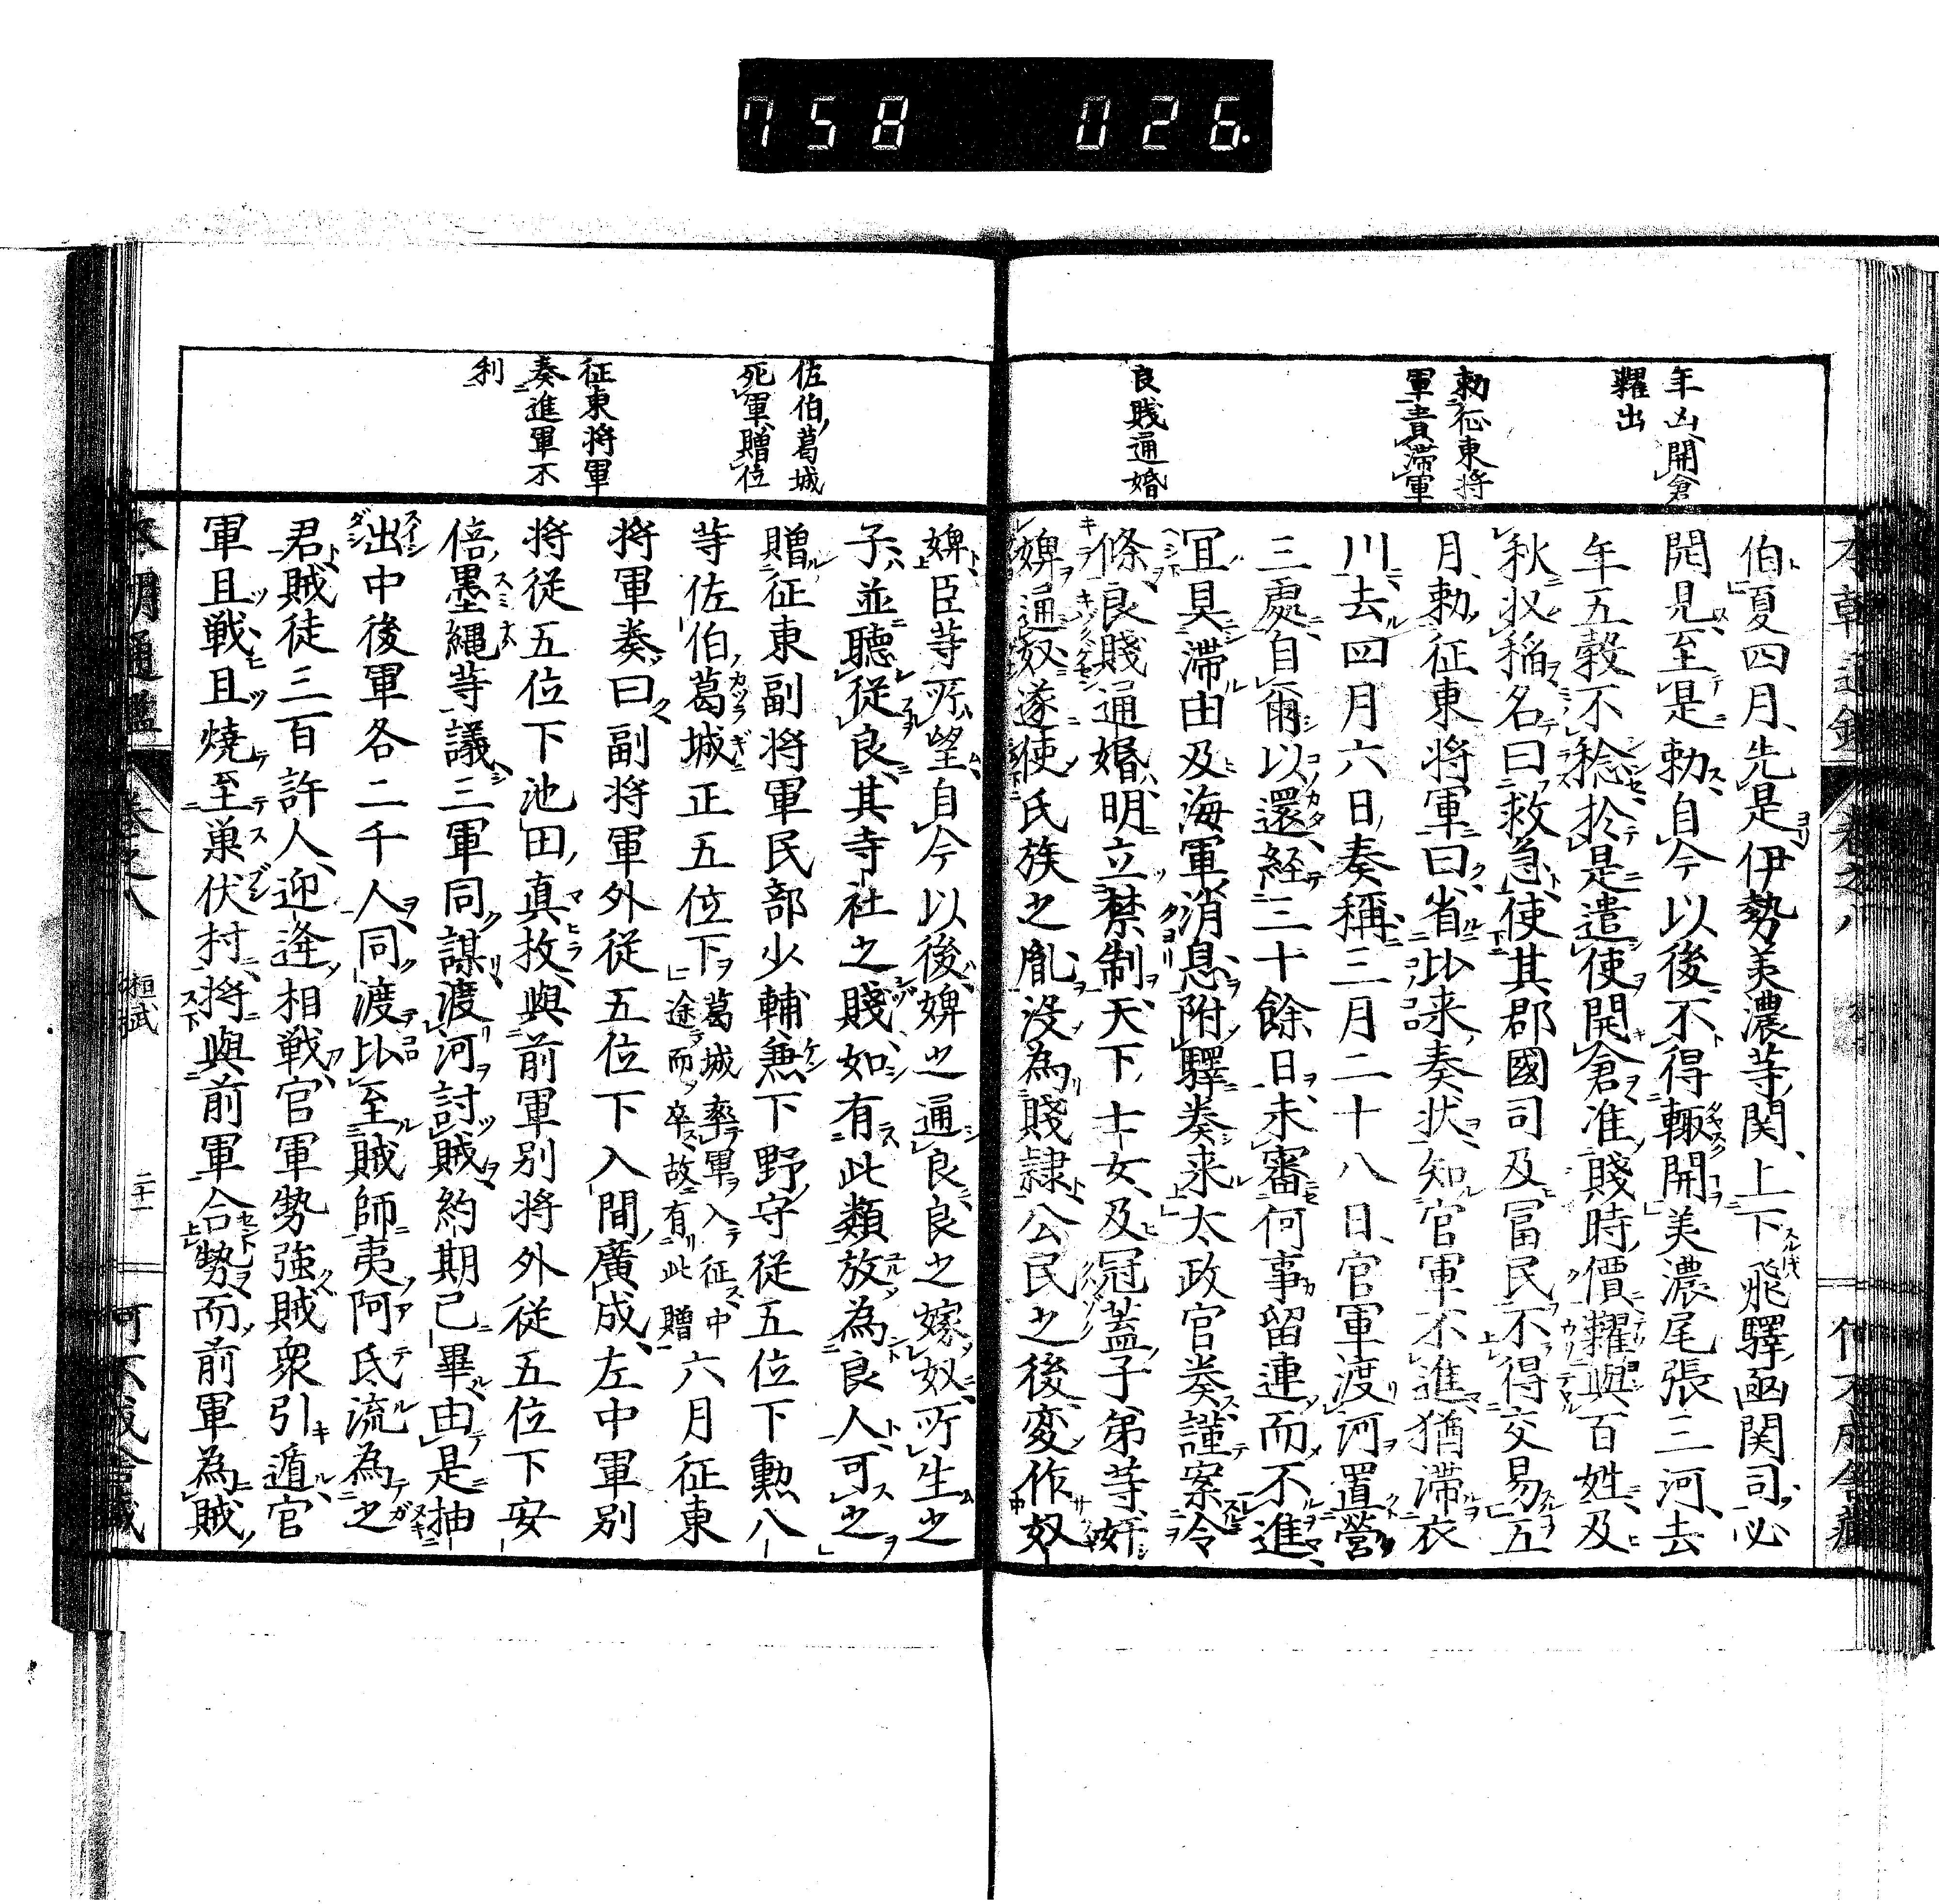 758 026.
年凶開倉
糶出
勅征東将
軍責滞軍
良賤通婚
伯夏四月、先是伊勢美濃等関、上下飛驛函関司必
開見、至是勅自今以後不得輙開、美濃尾張三河、去
年五穀不稔、於是遣使開倉、准賤時價糶與百姓、及
秋收稲、名曰救急、使其郡國司及冨民不得交易、五
月、勅征東将軍曰、省比来奏状、知官軍不進、猶滞衣
川、去四月六日奏稱、三月二十八日、官軍渡河置營
三處、自爾以還経三十餘日、未審何事留連而不進、
冝具滞由及海軍消息、附驛奏来、太政官奏、謹案令
條、良賤通婚、明立禁制、天下士女、及冠蓋子弟等、姧
婢通奴、遂使氏族之胤、没為賤隷、公民之後、変作奴
佐伯葛城
死軍贈位
征東将軍
奏進軍不
利
婢、臣等所望自今以後、婢之通良、良之嫁奴、所生之
子、並聽従良、其寺社之賤、如有此類、放為良人、可之、
贈征東副将軍民部少輔兼下野守従五位下勲八
等佐伯葛城正五位下、葛城率軍入征中途而卒故有此贈六月征東
将軍奏曰副将軍外従五位下入間廣成、左中軍別
将従五位下池田真枚、與前軍別将外従五位下安
倍墨縄等議、三軍同謀渡河討賊、約期已畢、由是抽
出中後軍各二千人、同渡比至賊師夷阿氐流為之
君、賊徒三百許人、迎逢相戦、官軍勢強、賊衆引遁、官
軍且戦且燒至巣伏村、将與前軍合勢、而前軍為賊
本朝通鑑 卷之八 桓武 二十一